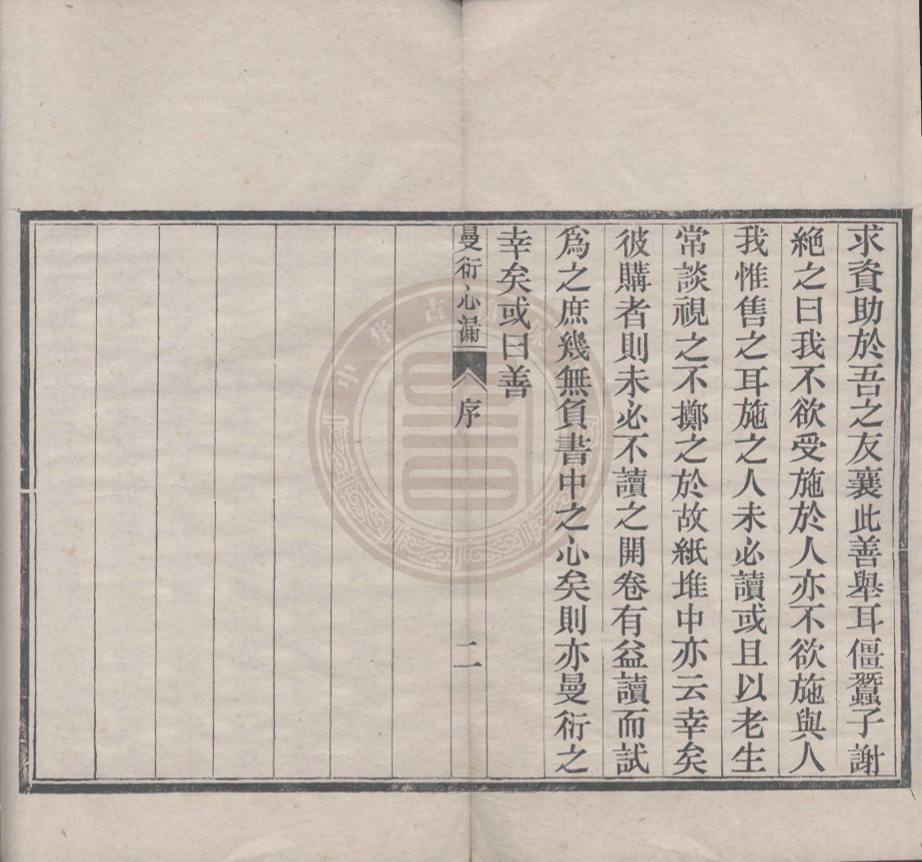 求資助於吾之友襄此善舉耳僵蠶子謝
絶之曰我不欲受施於人亦不欲施與人
我惟售之耳施之人未必讀或且以老生
常談視之不擲之於故紙堆中亦云幸矣
彼購者則未必不讀之開卷有益讀而試
爲之庶幾無負書中之心矣則亦曼衍之
幸矣或曰善
曼衍心漏 序 二